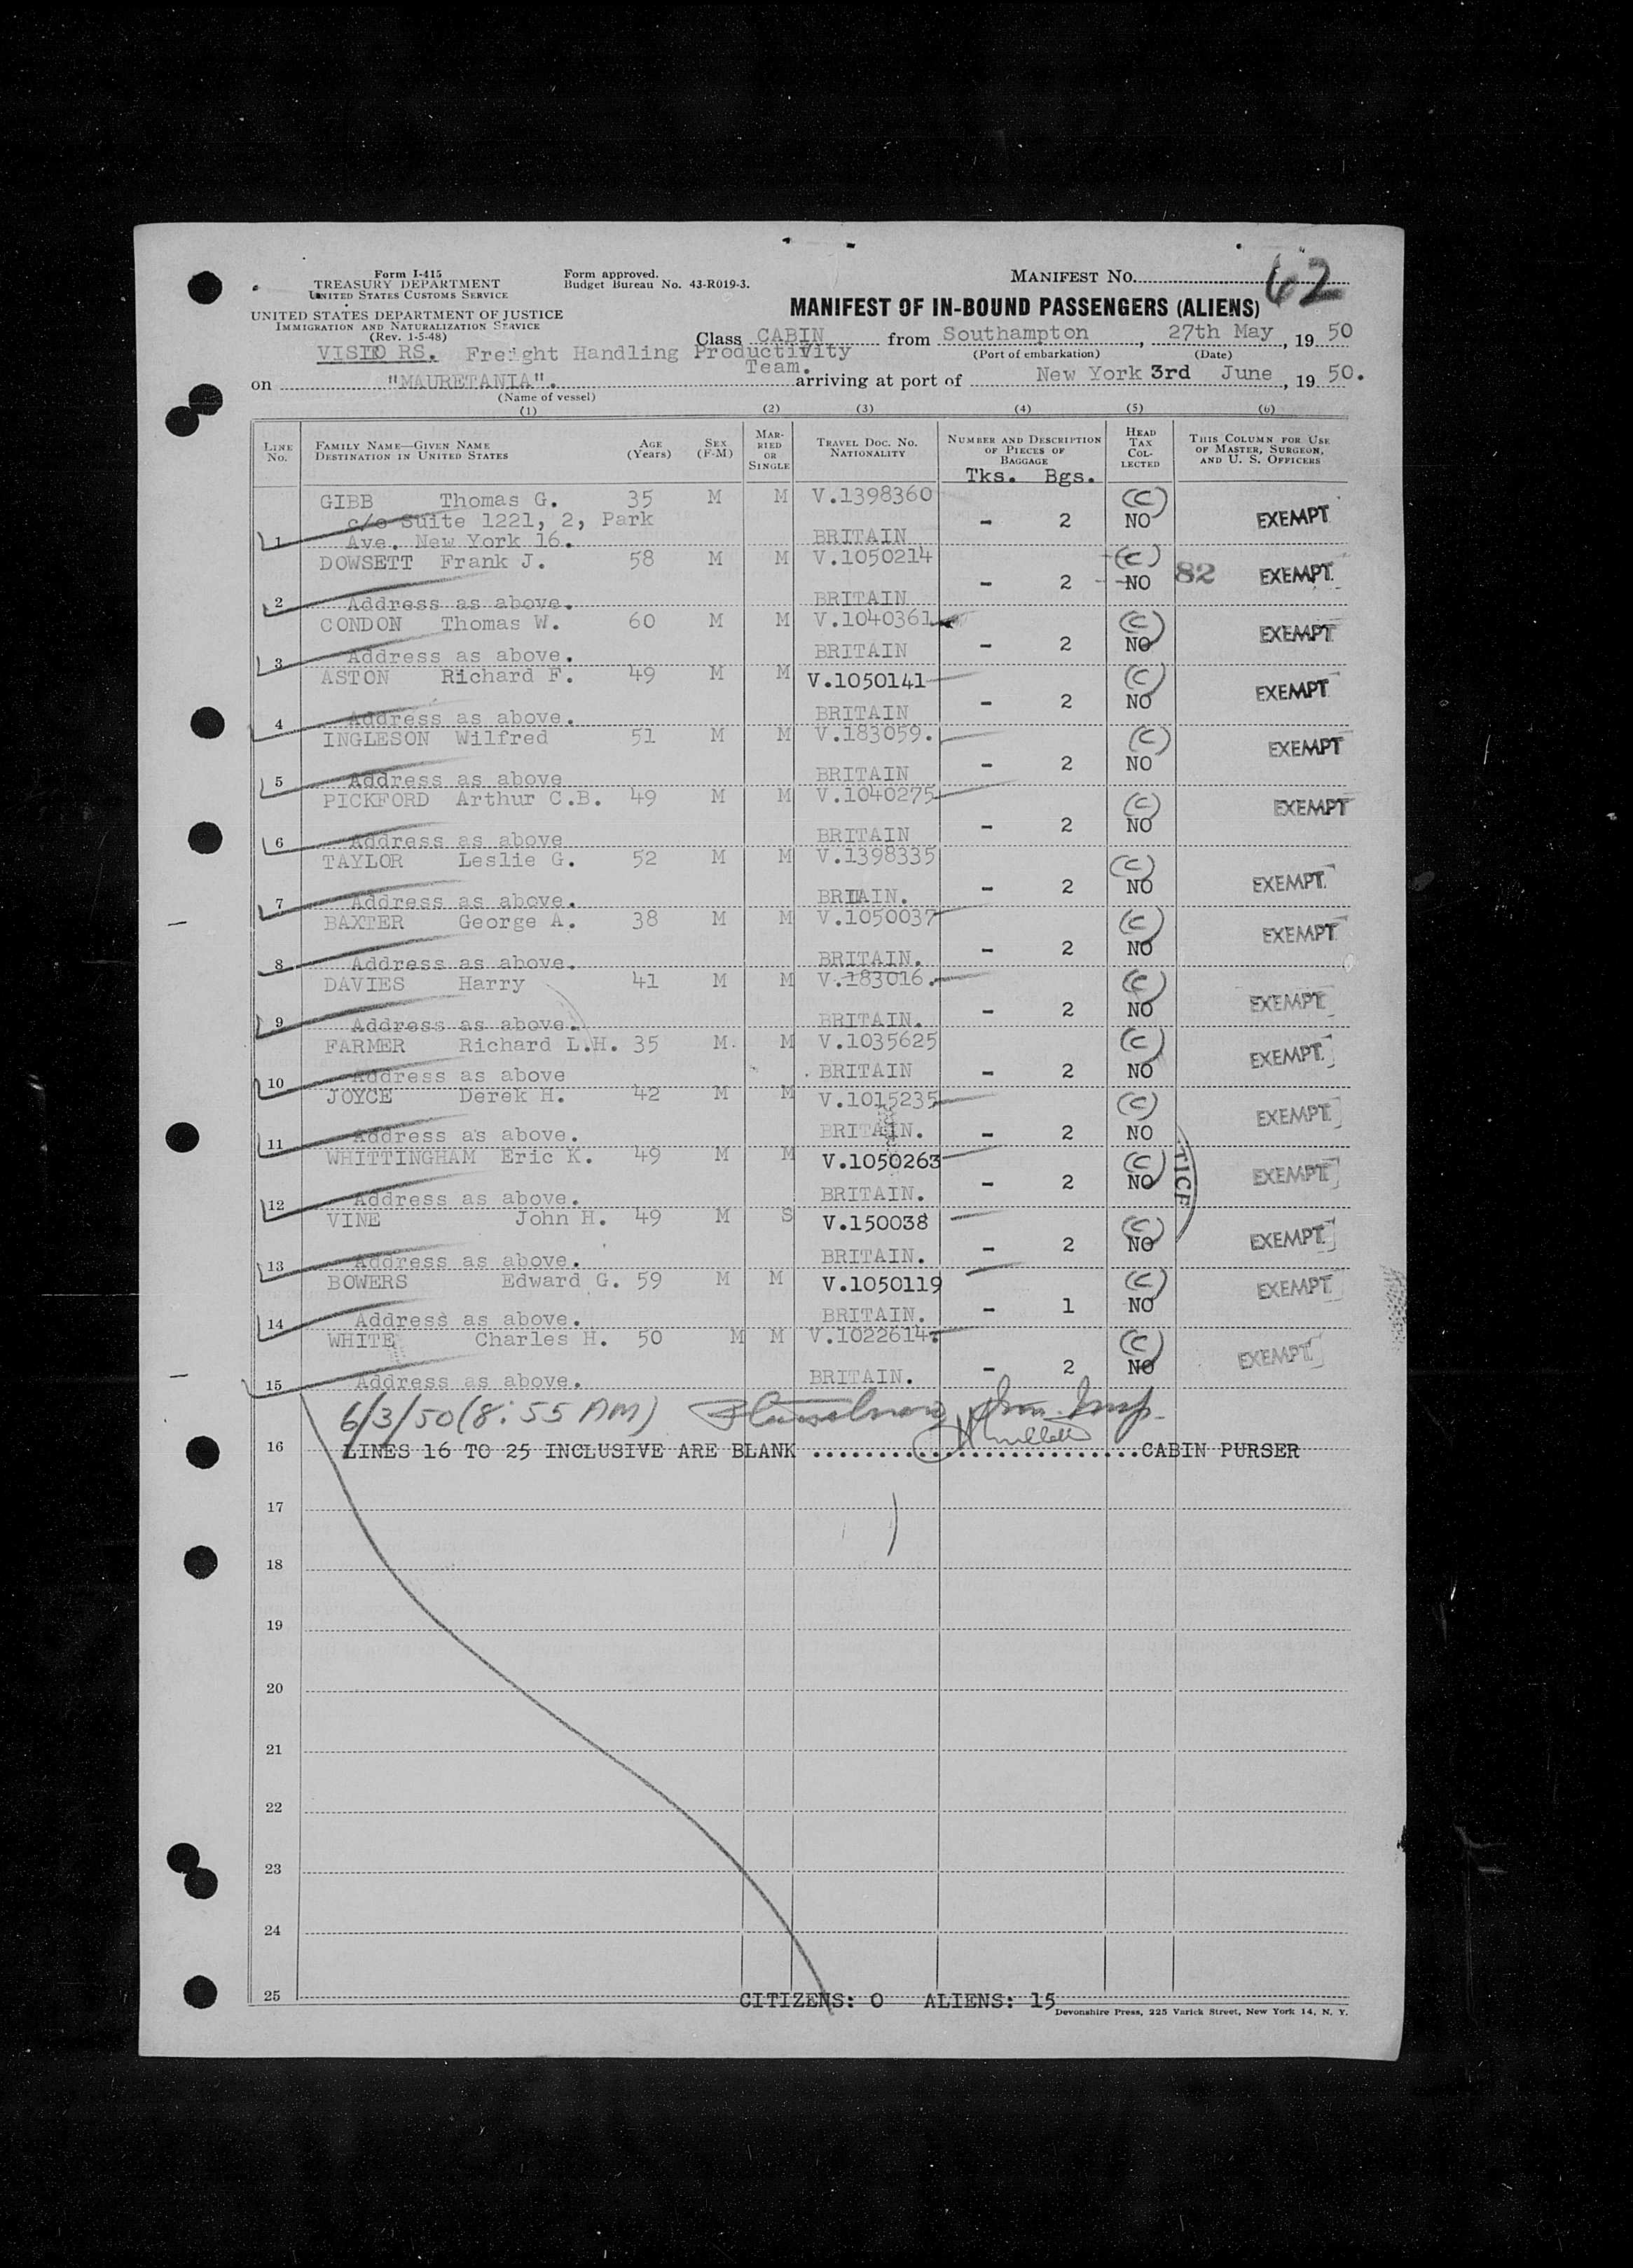 Form I-415
TREASURY DEPARTMENT
UNITED STATES CUSTOMS SERVICE
UNITED STATES DEPARTMENT OF JUSTICE
IMMIGRATION AND NATURALIZATION SERVICE
(Rev. 1-5-48)
Form approved.
Budget Bureau No. 43-R019-3.
MANIFEST NO. 62
MANIFEST OF IN-BOUND PASSENGERS (ALIENS)
Class CABIN from Southampton, 27th May, 1950
(Port of embarkation) (Date)
VISITO RS. Freight Handling Productivity
Team.
on "MAURETANIA". arriving at port of New York 3rd June, 1950.
(Name of vessel)
(1) (2) (3) (4) (5) (6)
LINE NO. FAMILY NAME—GIVEN NAME DESTINATION IN UNITED STATES AGE (Years) SEX (F-M) MARRIED OR SINGLE TRAVEL DOC. NO. NATIONALITY NUMBER AND DESCRIPTION OF PIECES OF BAGGAGE HEAD TAX COLLECTED THIS COLUMN FOR USE OF MASTER, SURGEON, AND U. S. OFFICERS
Tks. Bgs.
GIBB Thomas G. 35 M M V.1398360 (C)
c/o Suite 1221, 2, Park - 2 NO EXEMPT
1 Ave. New York 16. BRITAIN
DOWSETT Frank J. 58 M M V.1050214 (C)
- 2 NO 82 EXEMPT
2 Address as above. BRITAIN
CONDON Thomas W. 60 M M V.1040361 (C)
- 2 NO EXEMPT
3 Address as above. BRITAIN
ASTON Richard F. 49 M M V.1050141 (C)
- 2 NO EXEMPT
4 Address as above. BRITAIN
INGLESON Wilfred 51 M M V.183059. (C)
- 2 NO EXEMPT
5 Address as above BRITAIN
PICKFORD Arthur C.B. 49 M M V.1040275 (C)
- 2 NO EXEMPT
6 Address as above BRITAIN
TAYLOR Leslie G. 52 M M V.1398335 (C)
- 2 NO EXEMPT
7 Address as above. BRITAIN.
BAXTER George A. 38 M M V.1050037 (C)
- 2 NO EXEMPT
8 Address as above. BRITAIN.
DAVIES Harry 41 M M V.183016. (C)
- 2 NO EXEMPT
9 Address as above. BRITAIN.
FARMER Richard L.H. 35 M. M V.1035625 (C)
10 Address as above BRITAIN - 2 NO EXEMPT
JOYCE Derek H. 42 M M V.1015235 (C)
11 Address as above. BRITAIN. - 2 NO EXEMPT
WHITTINGHAM Eric K. 49 M M V.1050263 (C)
TICE
12 Address as above. BRITAIN. - 2 NO EXEMPT
VINE John H. 49 M S V.150038 (C)
13 Address as above. BRITAIN. - 2 NO EXEMPT
BOWERS Edward G. 59 M M V.1050119 (C)
14 Address as above. BRITAIN. - 1 NO EXEMPT
WHITE Charles H. 50 M M V.1022614. (C)
15 Address as above. BRITAIN. - 2 NO EXEMPT
6/3/50 (8:55 AM) Imm. Insp.
16 LINES 16 TO 25 INCLUSIVE ARE BLANK ......................... CABIN PURSER
17
18
19
20
21
22
23
24
25
CITIZENS: 0 ALIENS: 15
Devonshire Press, 225 Varick Street, New York 14, N. Y.